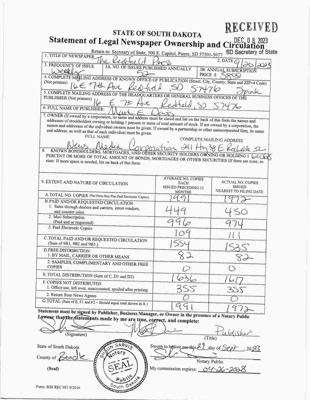 RECEIVED
DEC 08 2023
SD Secretary of State
STATE OF SOUTH DAKOTA
Statement of Legal Newspaper Ownership and Circulation
Return to: Secretary of State, 500 E Capitol, Pierre, SD 57501-5077
1. TITLE OF NEWSPAPER The Redfield Press
2. DATE
3. FREQUENCY OF ISSUE weekly
3A. NO. OF ISSUES PUBLISHED ANNUALLY 52
3B. ANNUAL SUBSCRIPTION PRICE $
4. COMPLETE MAILING ADDRESS OF KNOWN OFFICE OF PUBLICATION (Street, City, County, State and ZIP+4 Code) (Not printer)
16 E 7th Ave Redfield SD 57476 Spink
5. COMPLETE MAILING ADDRESS OF THE HEADQUARTERS OR GENERAL BUSINESS OFFICES OF THE PUBLISHER (Not printer)
16 E 7th Ave Redfield, SD 57476
6. FULL NAME OF PUBLISHER:
7. OWNER (If owned by a corporation, its name and address must be stated and list on the back of this form the names and
addresses of stockholders owning or holding 1 percent or more of total amount of stock. If not owned by a corporation, the
names and addresses of the individual owners must be given. If owned by a partnership or other unincorporated firm, its name
and address, as well as that of each individual must be given.
FULL NAME
COMPLETE MAILING ADDRESS
News Media Corporation 211
8. KNOWN BONDHOLDERS, MORTGAGEES, AND OTHER SECURITY HOLDERS OWNING OR HOLDING 1
PERCENT OR MORE OF TOTAL AMOUNT OF BONDS, MORTGAGES OR OTHER SECURITIES (If there are none, so
state. If more space is needed, list on back of this page.)
9. EXTENT AND NATURE OF CIRCULATION
AVERAGE NO. COPIES EACH ISSUED PRECEDING 12 MONTHS
ACTUAL NO. COPIES ISSUED NEAREST TO FILING DATE
A. TOTAL NO. COPIES 1991 1972
B. PAID AND/OR REQUESTED CIRCULATION
1. Sales through dealers and carriers, street vendors, and counter sales. 449 450
2. Mail Subscription (Paid and or requested) 996 974
3. Paid Electronic Copies 109 111
C. TOTAL PAID AND/OR REQUESTED CIRCULATION (Sum of 9B1, 9B2 and 9B3) 1554 1535
D. FREE DISTRIBUTION
1. BY MAIL, CARRIER OR OTHER MEANS 82 82
2. SAMPLES, COMPLIMENTARY AND OTHER FREE COPIES 0 0
E. TOTAL DISTRIBUTION (Sum of C, D1 and D2) 1636 1617
F. COPIES NOT DISTRIBUTED
1. Office use, left over, unaccounted, spoiled after printing 355 355
2. Return from News Agents 0 0
G. TOTAL (Sum of E, F1 and F2 - Should equal total shown in A.) 1991 1972
Statement must be signed by Publisher, Business Manager, or Owner in the presence of a Notary Public
I swear that the statements made by me are true, correct, and complete:
(Signature)
Publisher
(Title)
State of South Dakota
County of Beadle
Sworn to before me this day of Sept 2023
Notary Public
(Seal)
NOTARY
SEAL
PUBLIC
South Dakota
My commission expires: 04-26-2028
Form: SOS REC 051 9/2016